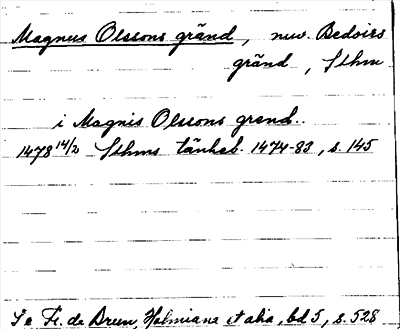 Magnus Olssons gränd, nuv. Bedoirs
gränd, Sthm
i Magnis Olssons grend..
1478 14/2 Sthms tänkeb. 1474-83, s. 145
Se Fr. de Brun, Holmiana et alia, bd 5, s. 528